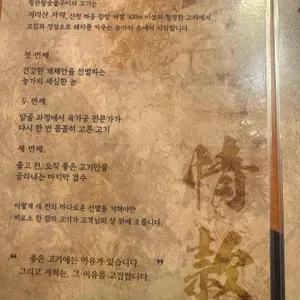 정관왕숯불구이의 고기는
지리산 자락, 산청·해동·함양 해발 500m 이상의 청정한 고지에서
고집과 정성으로 돼지를 키우는 농가의 손에서 시작됩니다.
첫 번째.
건강한 개체만을 선별하는
농가의 세심한 눈
두 번째.
발골 과정에서 육가공 전문가가
다시 한 번 꼼꼼히 고른 고기
세 번째.
출고 전, 오직 좋은 고기만을
골라내는 마지막 검수
이렇게 세 번의 까다로운 선별을 거쳐야만
비로소 한 점의 고기가 고객님의 상 위에 오릅니다.
“ 좋은 고기에는 이유가 있습니다. ”
그리고 저희는, 그 이유를 고집합니다.
情